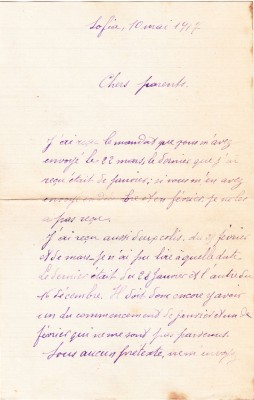 Sofia, 10 mai 1917
Chers parents.
J'ai reçu le mandat que vous m'avez
envoyé le 22 mars, le dernier que j'ai
reçu était de janvier; si vous m'en avez
envoyé un en février je ne l'ai
pas reçu.
J'ai reçu aussi deux colis, du février
et de mars je n'ai pu lire à quelle date
Le dernier était du 26 janvier et l'autre du
16 décembre. Il doit donc encore y avoir
un du commencement de janvier et un de
février qui ne me sont pas parvenus.
Sous aucun prétexte, ne m'envoyez